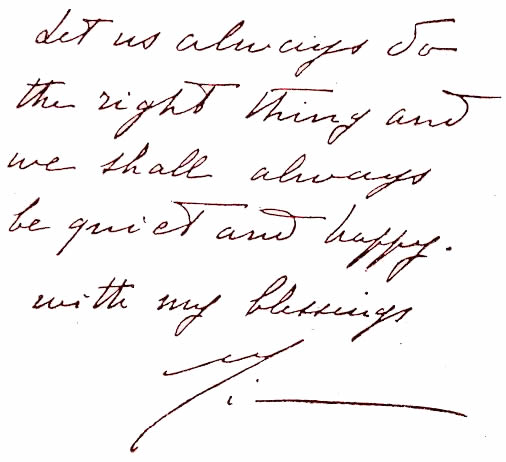 Let us always do
the right thing and
we shall always
be quiet and happy.
with my blessings